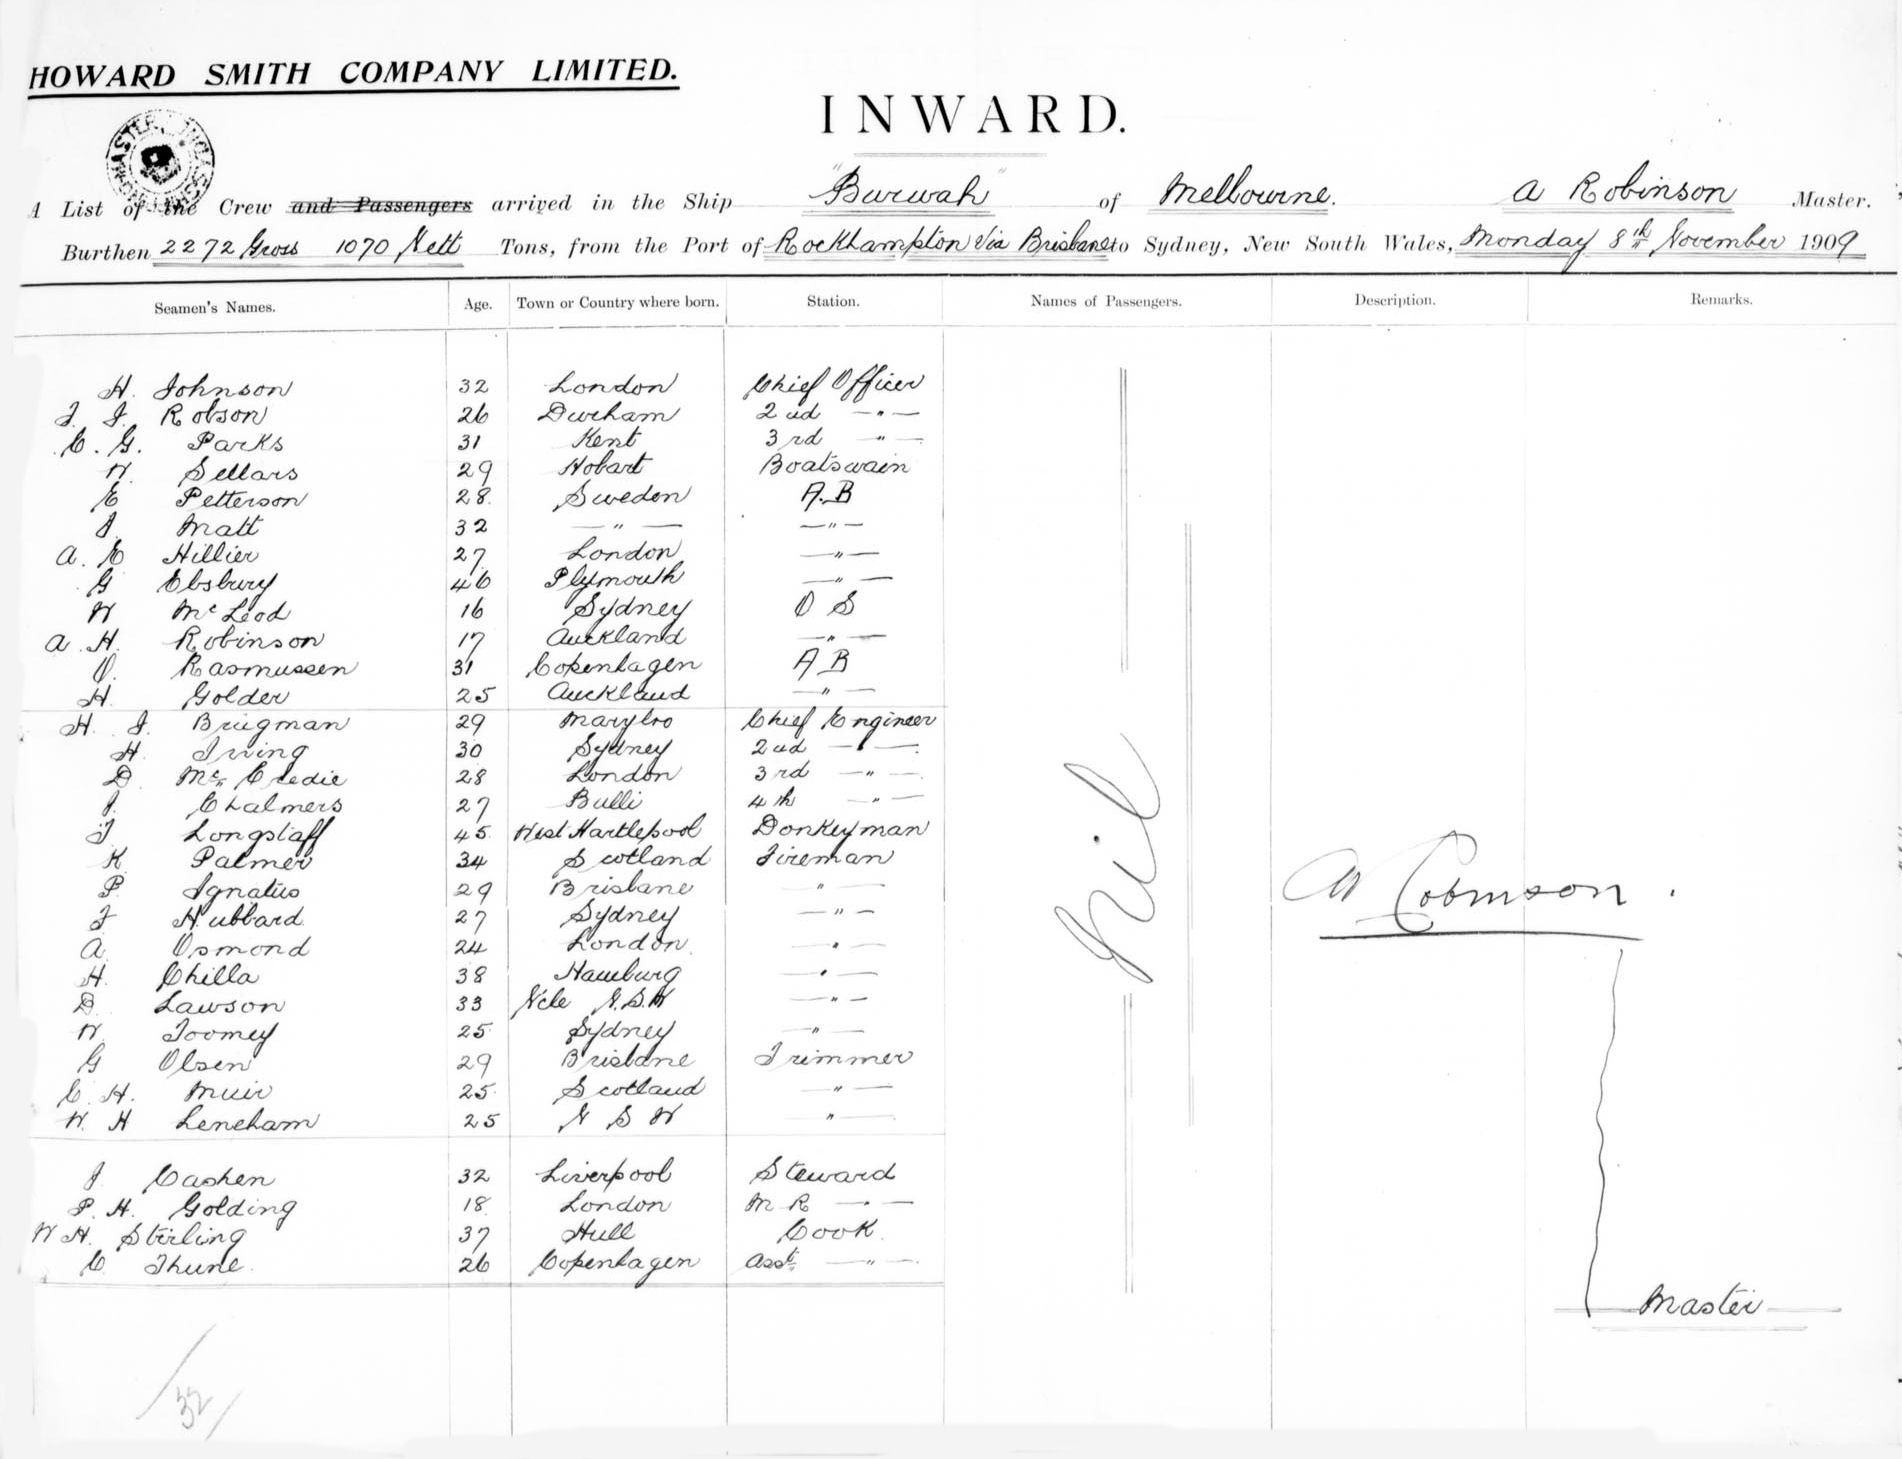 HOWARD SMITH COMPANY LIMITED.
INWARD.
A List of the Crew and Passengers arrived in the Ship "Burwah" of Melbourne. A Robinson Master.
Burthen 2272 Gross 1070 Nett Tons, from the Port of Rockhampton via Brisbane to Sydney, New South Wales, Monday 8th November 1909
Seamen's Names. Age. Town or Country where born. Station. Names of Passengers. Description. Remarks.
H. Johnson 32 London Chief Officer
J. J. Robson 26 Durham 2nd —"—
C. G. Parks 31 Kent 3rd —"—
W. Sellars 29 Hobart Boatswain
E Petterson 28 Sweden A.B
J. Matt 32 —"— —"—
A. E Hillier 27 London —"—
G Ebsbury 46 Plymouth —"—
W McLeod 16 Sydney O S
A. H. Robinson 17 Auckland —"—
O. Rasmussen 31 Copenhagen A B
H. Golder 25 Auckland —"—
H. J. Brugman 29 Marybro Chief Engineer
H. Irving 30 Sydney 2nd —"—
D. McCredie 28 London 3rd —"—
J. Chalmers 27 Bulli 4th —"—
J Longstaff 45 West Hartlepool Donkeyman
K Palmer 34 Scotland Fireman
P. Ignatius 29 Brisbane —"—
F Hubbard 27 Sydney —"—
A Osmond 24 London —"—
H. Chilla 38 Hamburg —"—
D. Lawson 33 Ncle N.S.W —"—
W. Toomey 25 Sydney —"—
G Olsen 29 Brisbane Trimmer
C. H. Muir 25 Scotland —"—
W. H Leneham 25 N S W —"—
J. Cashen 32 Liverpool Steward
P. H. Golding 18 London M R —"—
W H. Stirling 37 Hull Cook
C. Thune 26 Copenhagen Asst. —"—
Nil
A Robinson.
Master
32